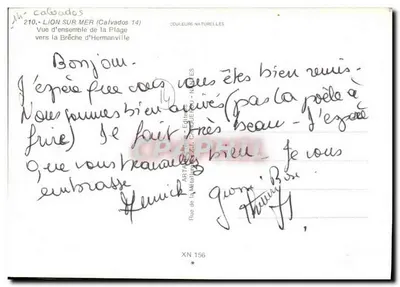 14 - Calvados
210. - LION SUR MER (Calvados 14)
Vue d'ensemble de la Plage
vers la Brèche d'Hermanville
COULEURS NATURELLES
Bonjour.
J'espère que vous vous êtes bien remis.
Nous sommes bien arrivés (pas la poêle à
frire) Il fait très beau - J'espère
que vous travaillez bien. Je vous
embrasse
Annick Gros Bisou
Thierry
CPAPHIL
XN 156